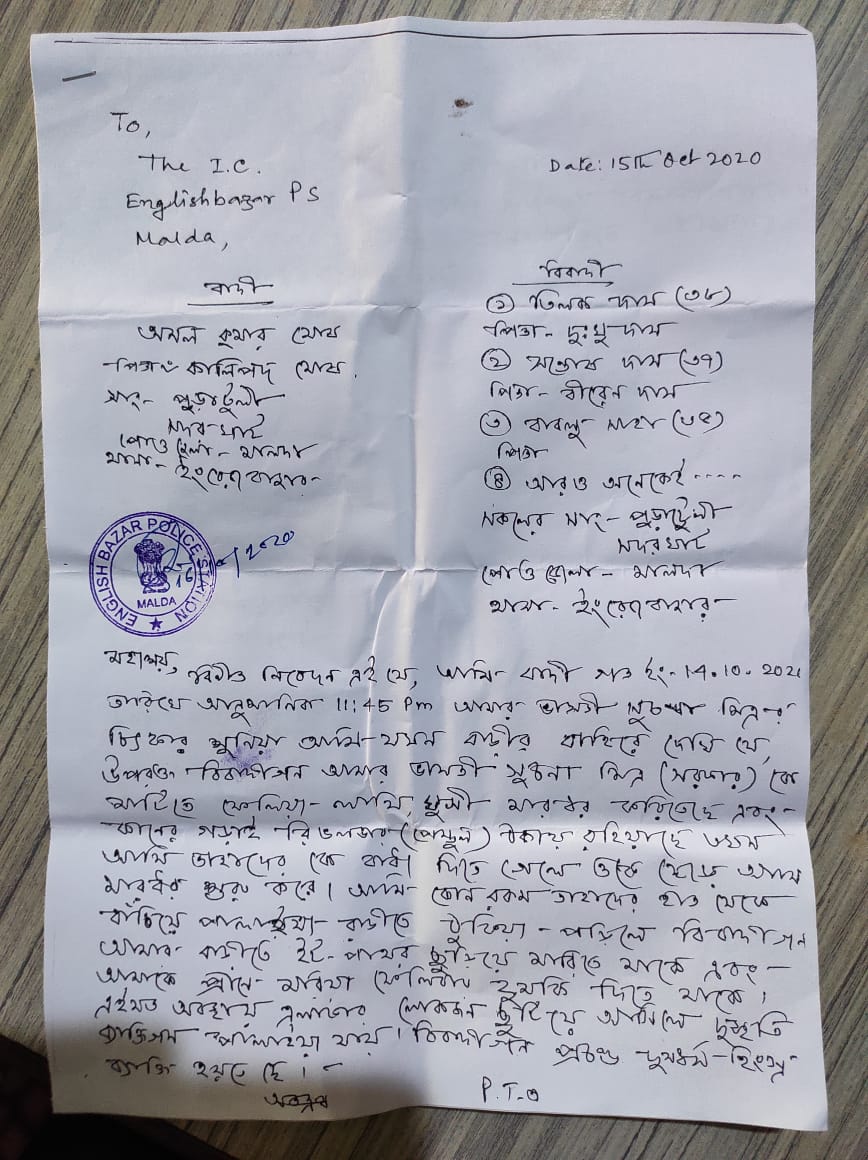 To,
The I.C.
Englishbazar PS
Malda,
Date: 15th Oct 2020
বাদী
অমল কুমার ঘোষ
পিতাঃ কালিপদ ঘোষ.
সাং- পুড়াটুলী
সদরঘাট
পোঃ ও জেলা - মালদা
থানা- ইংরেজবাজার-
বিবাদী
① তিলক দাস (৩৮)
পিতা- দুঃখু দাস
② সন্তোষ দাস (৩৭)
পিতা- বীরেন দাস
③ বাবলু সাহা
পিতা
④ আরও অনেকেই ----
সকলের সাং- পুড়াটুলী
সদরঘাট
পোঃ ও জেলা- মালদা
থানা- ইংরেজবাজার-
ENGLISH BAZAR POLICE STATION
MALDA
মহাশয়,
বিনীত নিবেদন এই যে, আমি বাদী গত ইং-14.10.2020
তারিখে আনুমানিক 11:45 Pm আমার ভাসতী মিত্র-র
চিৎকার শুনিয়া আমি যখন বাড়ীর বাহিরে দেখি যে,
উপরক্ত বিবাদীগন আমার ভাসতী মিত্র (সরদার) কে
মাটিতে ফেলিয়া- লাথি, ঘুসী মারধর করিতেছে এবং-
কানের গড়াই রিভলভার ঠেকায় রহিয়াছে তখন
আমি তাহাদের কে বাধা দিতে গেলে ওকে ছেড়ে আমায়
মারধর শুরু করে। আমি- কোন রকম তাহাদের হাত থেকে
বাঁচিয়ে পালাইয়া- বাড়ীতে ঢুকিয়া- পড়িলে বিবাদীগন
আমার- বাড়ীতে ইট- পাথর ছুড়িয়ে মারিতে থাকে এবং-
আমাকে প্রানে- মারিয়া ফেলিবার হুমকি দিতে থাকে।
এইমত অবস্থায় এলাকার লোকজন ছুটিয়ে আসিলে দুষ্কৃতি
ব্যাক্তিগন পালাইয়া যায়। বিবাদীগন প্রচন্ড দুর্ধর্ষ-হিংস্র-
ব্যাক্তি হয়তেছে।-
P.T.O